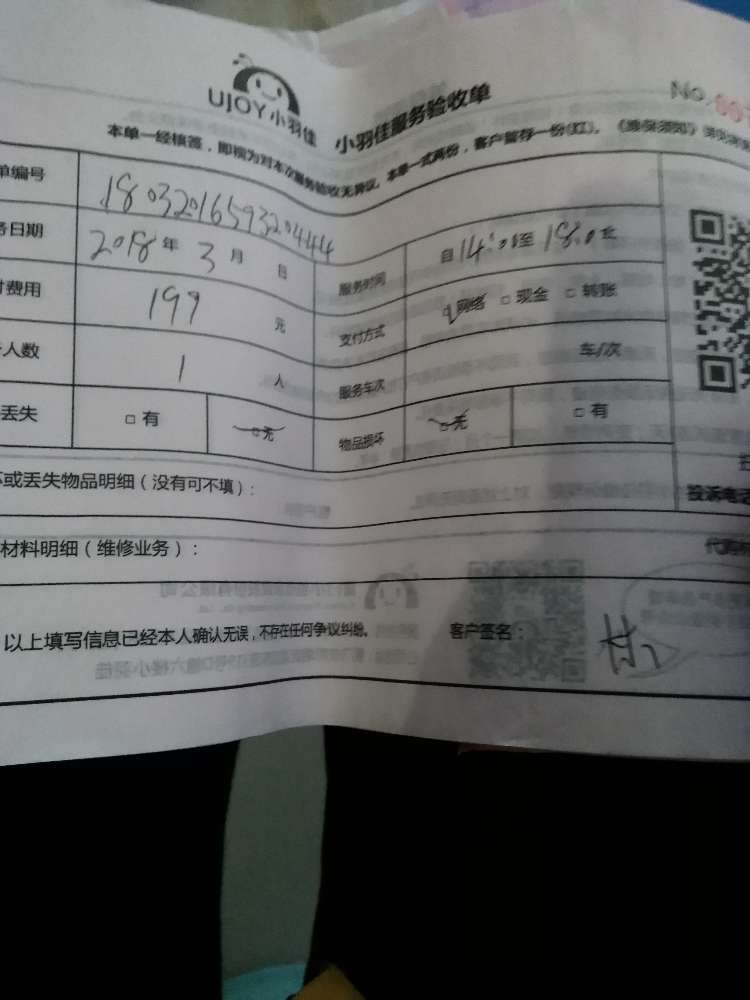 UJOY小羽佳 小羽佳服务验收单 No.
本单一经核签，即视为对本次服务验收无异议。本单一式两份，客户留存一份(红)。
单编号 180320165932044４
务日期 2018年3月 日 服务时间 自14:01至18:0
付费用 199元 支付方式 网络 □现金 □转账
人数 1人 服务车次 车/次
丢失 □有 □无 物品损坏 □无 □有
坏或丢失物品明细（没有可不填）：
投诉电话
材料明细（维修业务）：
以上填写信息已经本人确认无误，不存在任何争议纠纷。 客户签名：